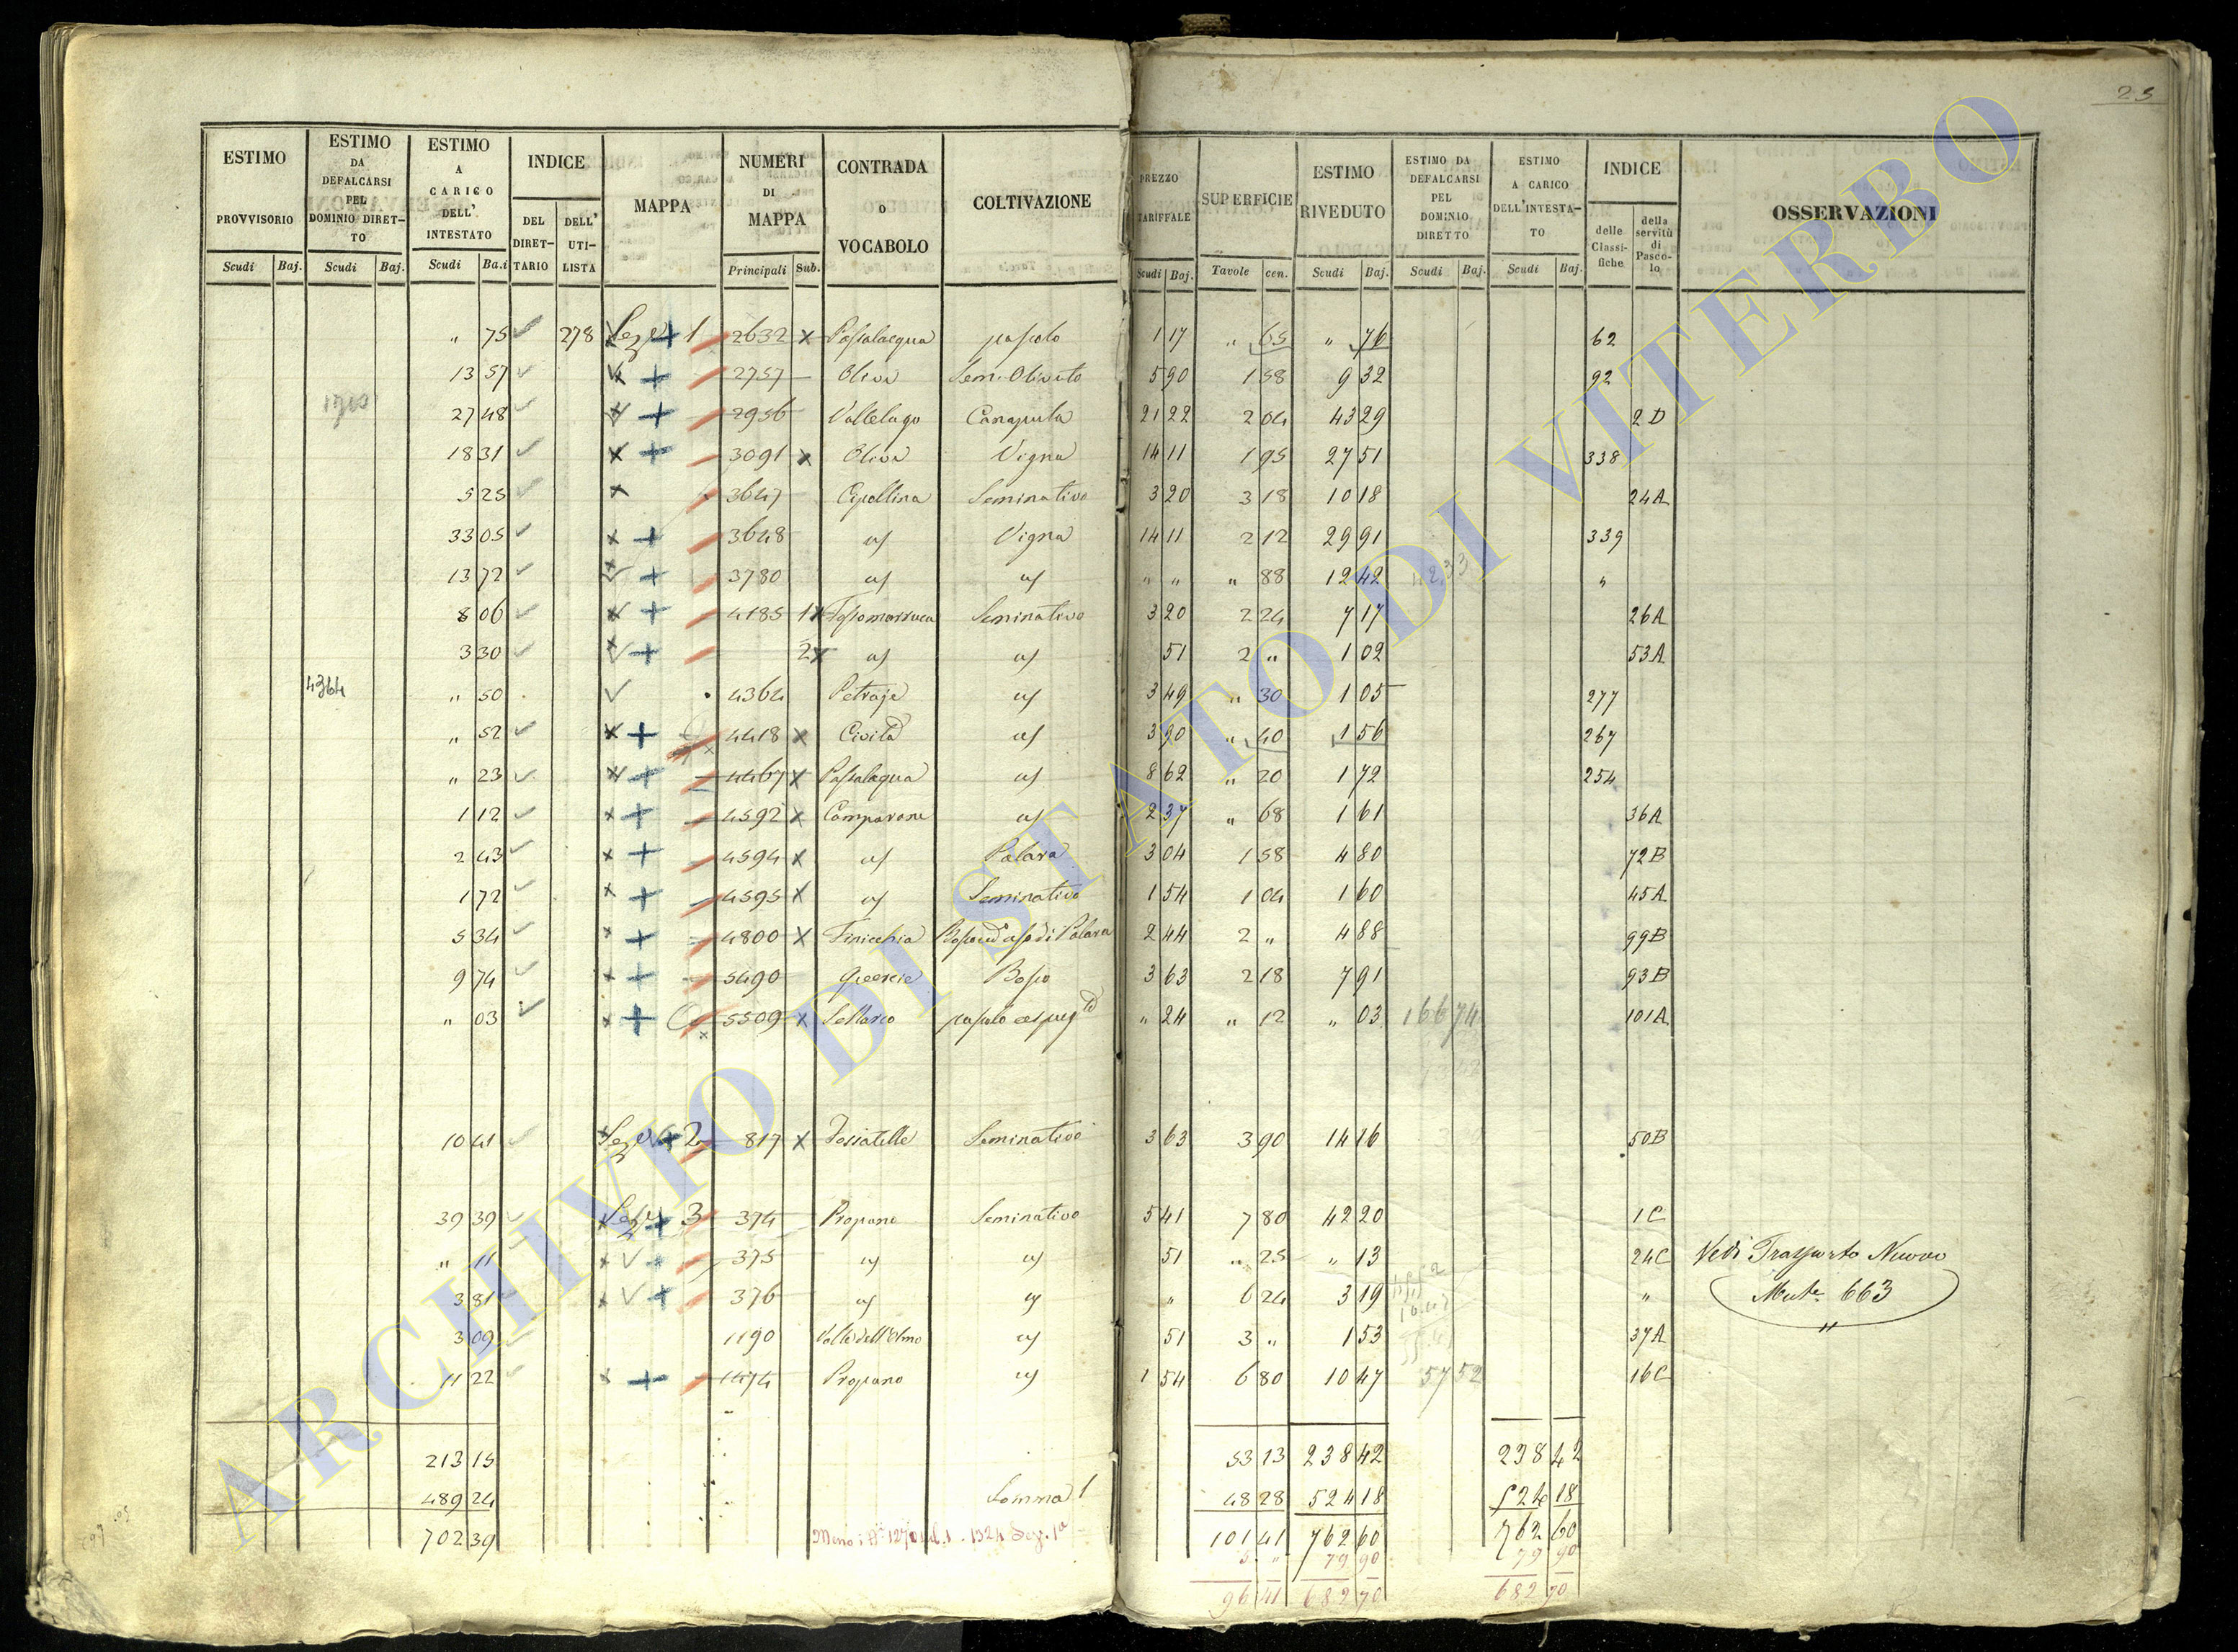 25
ESTIMO PROVVISORIO
ESTIMO DA DEFALCARSI PEL DOMINIO DIRETTO
ESTIMO A CARICO DELL' INTESTATO
INDICE
DEL DIRETTARIO
DELL' UTILISTA
MAPPA
NUMERI DI MAPPA
CONTRADA O VOCABOLO
COLTIVAZIONE
PREZZO TARIFFALE
SUPERFICIE
ESTIMO RIVEDUTO
ESTIMO DA DEFALCARSI PEL DOMINIO DIRETTO
ESTIMO A CARICO DELL'INTESTATO
INDICE
delle Classifiche
della servitù di Pascolo
OSSERVAZIONI
Scudi Baj. Scudi Baj. Scudi Ba.i Principali Sub. Scudi Baj. Tavole cen. Scudi Baj. Scudi Baj. Scudi Baj.
" 75 278 Sez. 1 2632 x Passalacqua pascolo 1 17 " 65 " 76 62
13 57 2757 Oliva Sem. Olivato 5 90 1 58 9 32 92
27 48 2956 Vallelago Canapula 21 22 2 04 43 29 2D
18 31 3091 x Oliva Vigna 14 11 1 95 27 51 338
5 25 3647 Cipollina Seminativo 3 20 3 18 10 18 24A
33 05 3648 Vigna 14 11 2 12 29 91 339
13 72 3780 " " " 88 12 42 42 33 "
8 06 4185 1x Seminativo 3 20 2 24 7 17 26A
3 30 2x 51 2 " 1 02 53A
4364 " 50 4364 Petraje 3 49 " 30 1 05 277
" 52 4418 x Civita 3 90 " 40 1 56 267
" 23 4467 x Passalaqua 8 62 " 20 1 72 254
1 12 4592 x Camparone 2 37 " 68 1 61 36A
2 43 4594 x Palara 3 04 1 58 4 80 72B
1 72 4595 x Seminativo 1 54 1 04 1 60 45A
5 34 4800 x Finicchia 2 44 2 " 4 88 99B
9 74 5490 Quercie Bosco 3 63 2 18 7 91 93B
" 03 5509 x pascolo " 24 " 12 " 03 166 74 101A
10 41 Sez. 2 817 x Fossatelle Seminativo 3 63 3 90 14 16 50B
39 39 Sez. 3 374 Propano Seminativo 5 41 7 80 42 20 1C
" 11 375 51 " 25 " 13 24C Vedi Trasporto Nuovo
3 81 376 " 6 24 3 19 " Mute 663
3 09 1190 Valle dell'Olmo 51 3 " 1 53 37A
11 22 1474 Propano 1 54 6 80 10 47 57 52 16C
213 15 53 13 238 42 238 42
489 24 Somma 1 48 28 524 18 524 18
702 39 101 41 762 60 762 60
5 " 79 90 79 90
96 41 682 70 682 70
ARCHIVIO DI STATO DI VITERBO